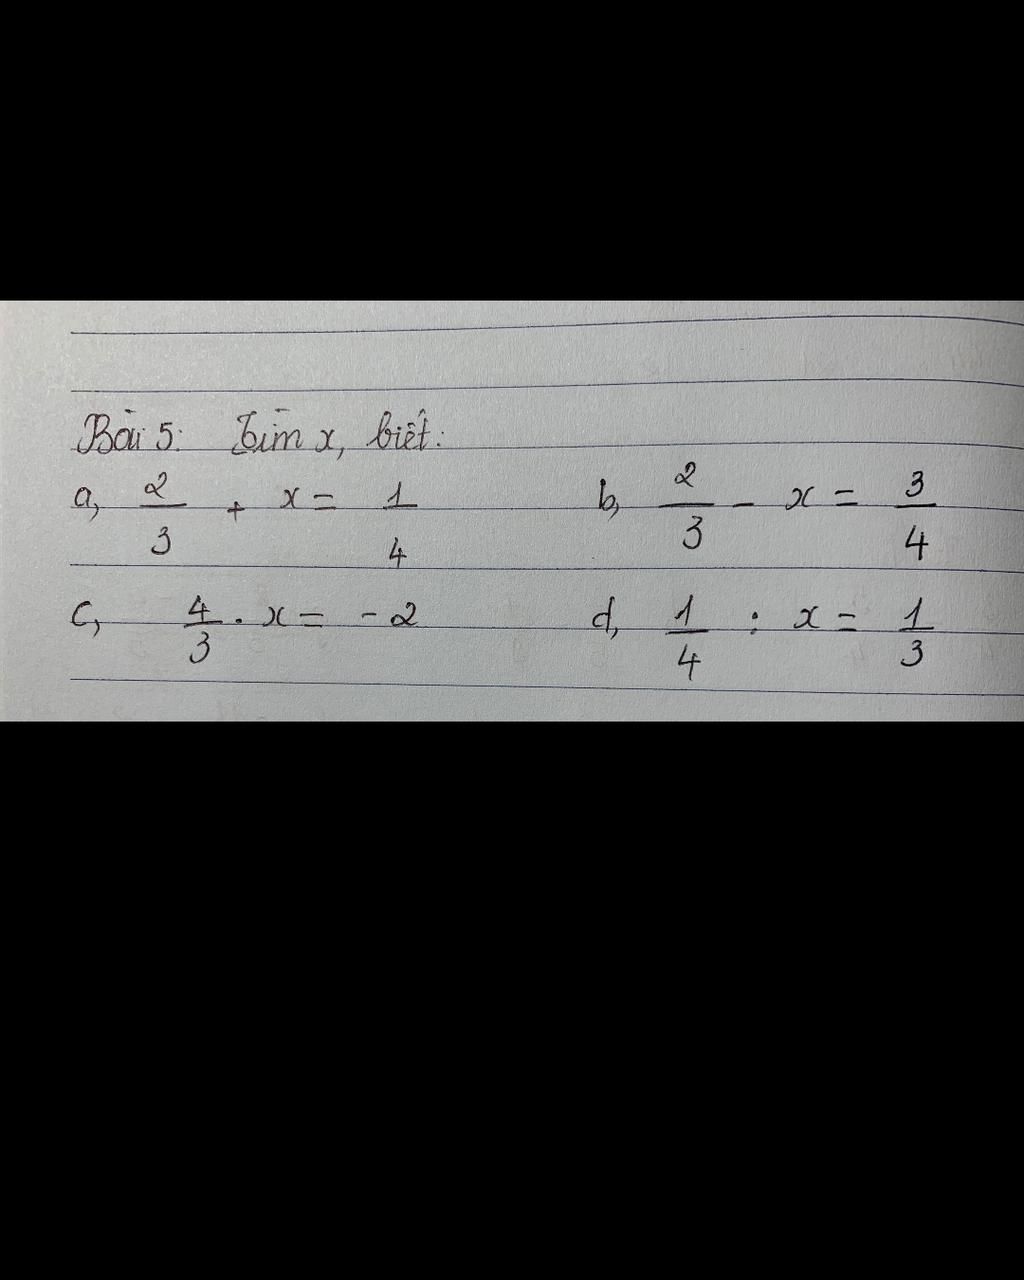 Bài 5: Tìm x, biết:
a, 2/3 + x = 1/4 b, 2/3 - x = 3/4
c, 4/3 . x = -2 d, 1/4 : x = 1/3